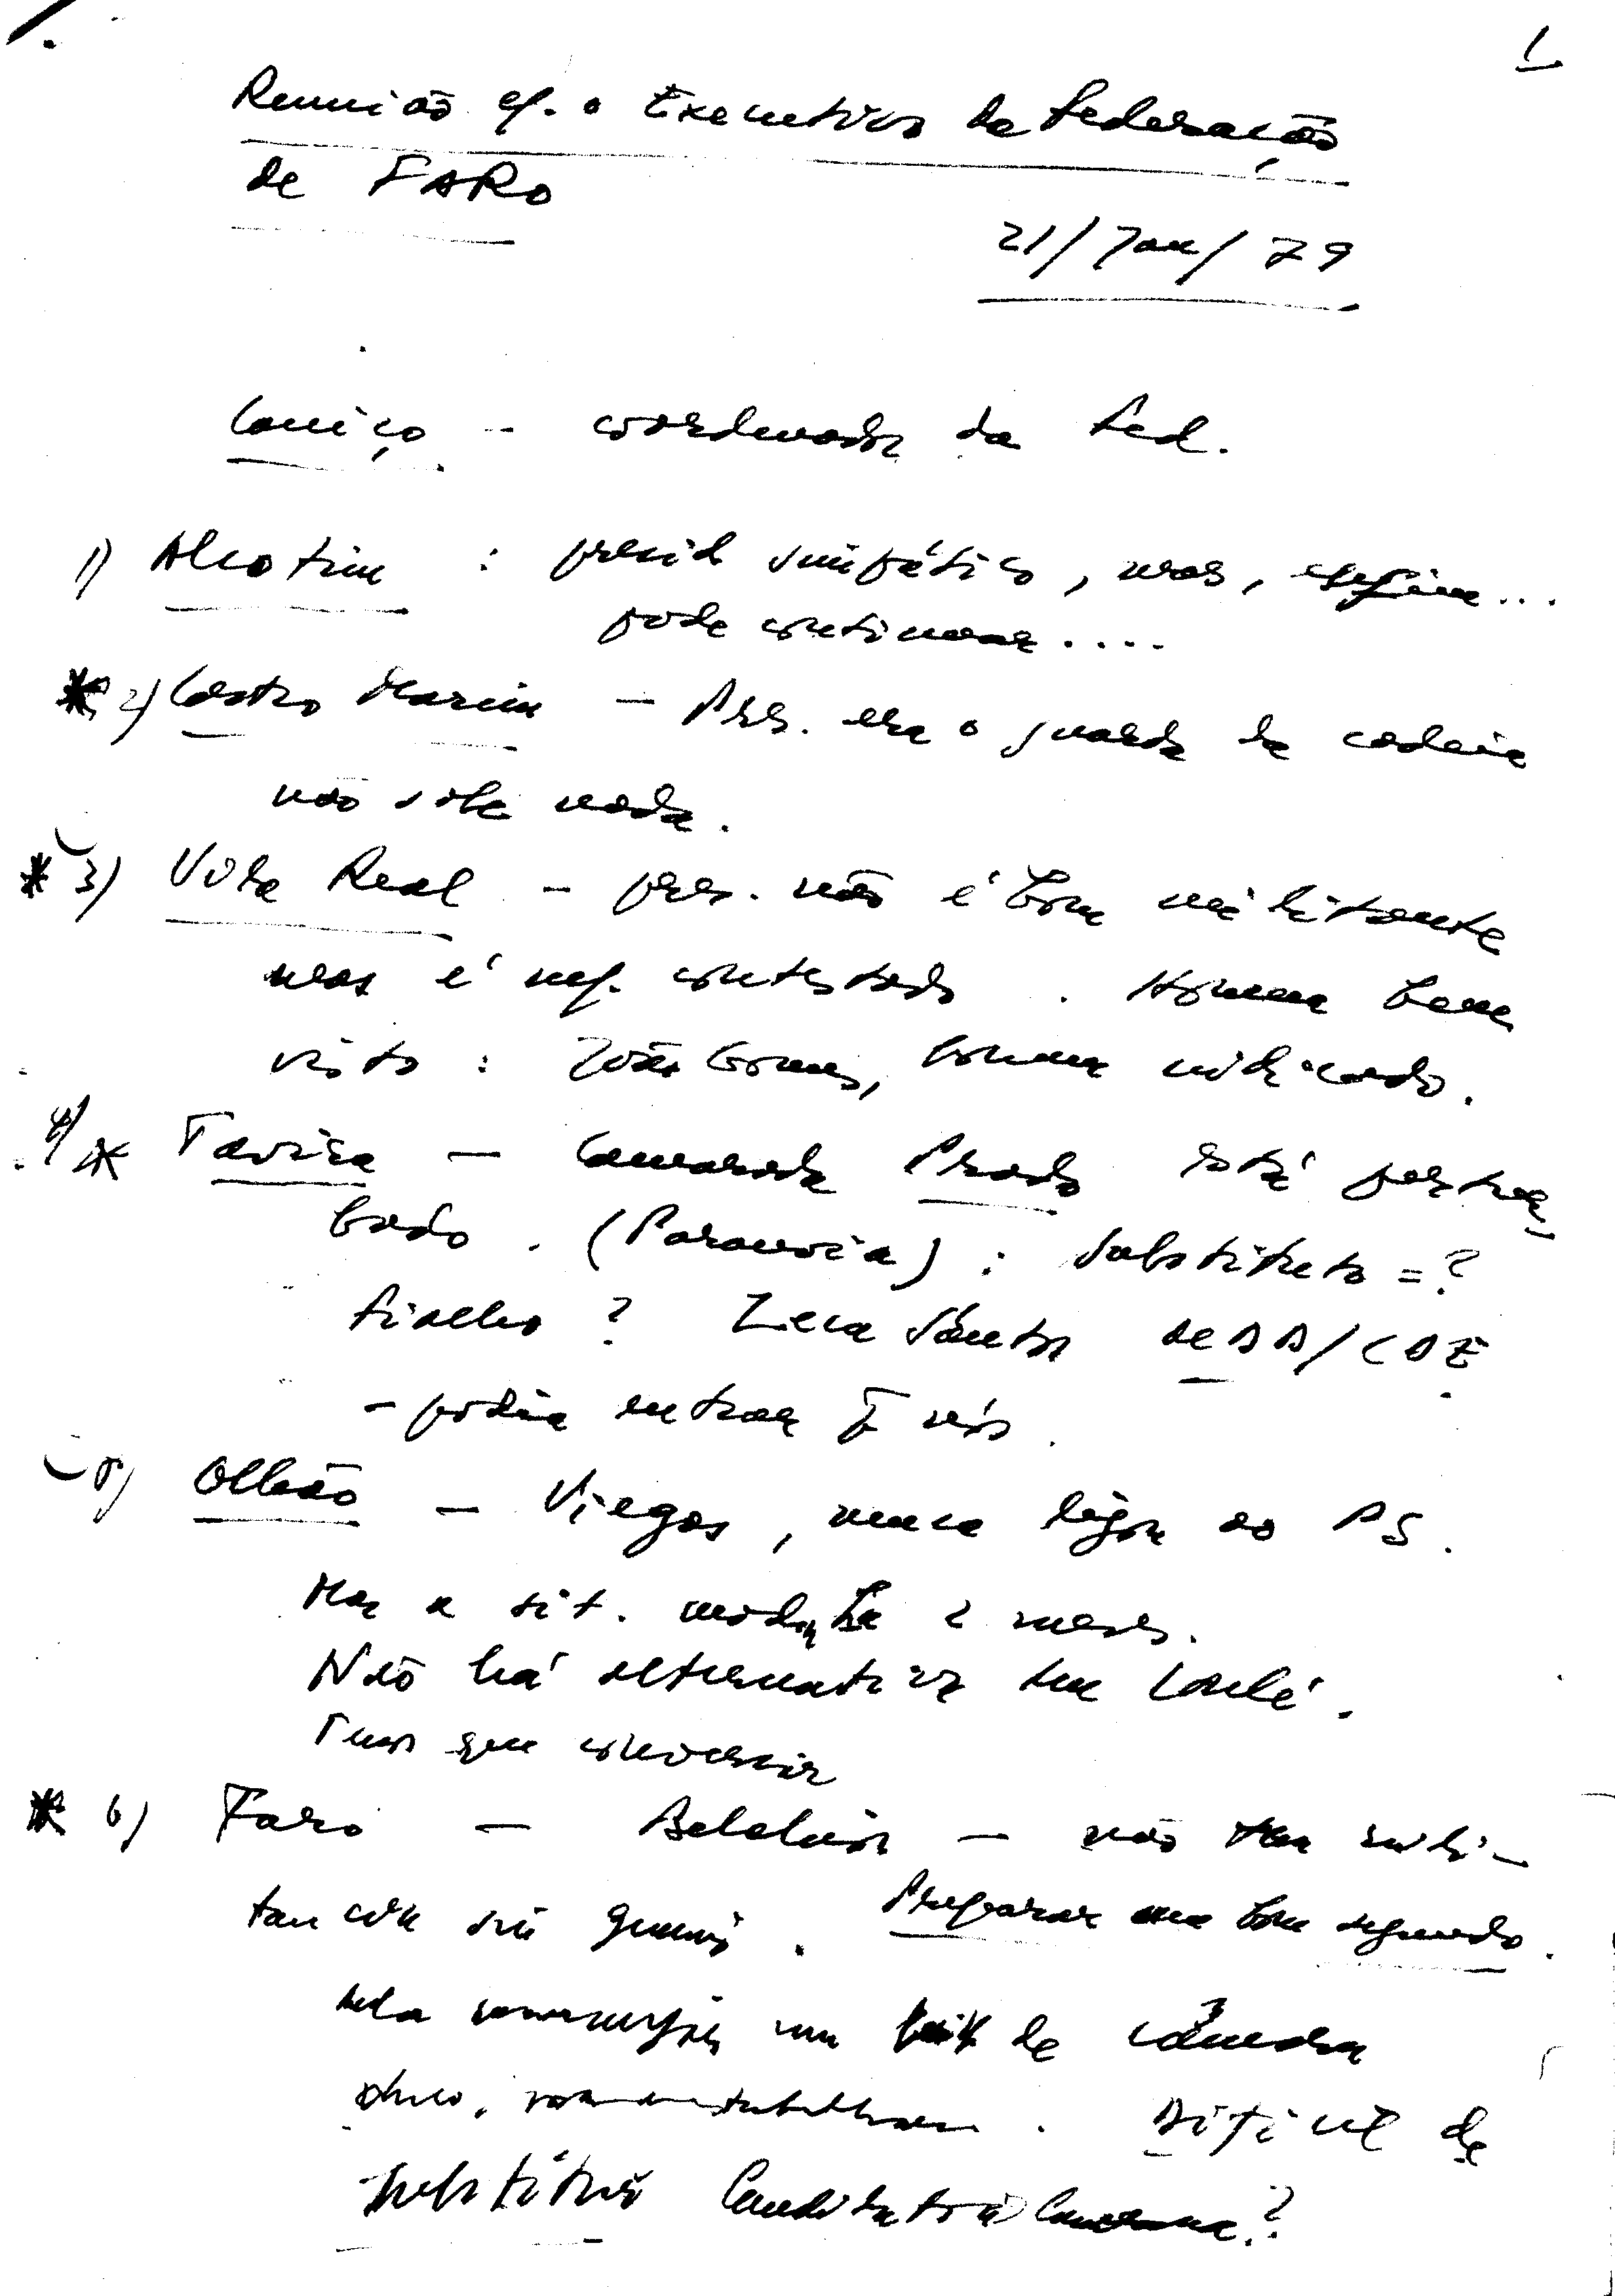 1
Reunião c/. o Executivo da Federação
de FARO
21/Jan/79
Caniço - coordenador da Fed.
1) Alcotim : presid simpático, mas, enfim...
pode continuar....
* 2) Castro Marim - Pres. era o guarda da cadeia
não vale nada.
* 3) Vila Real - pres. não é bom militante
mas é contestado. Homem bem
visto : João Gomes, homem indicado.
4) * Tavira - Camarada Prado está pertur-
bado. (Paranoia) : substituto = ?
Fialho ? Zeca Santos de DD/CDE
- podia entrar P. nós.
5) Olhão - Viegas, nunca ligou ao PS.
Mas a sit. mudou há 2 meses.
Não há alternativa em Loulé.
Temos que conversar
* 6) Faro - Belchior - não tem mili-
tan em. Preparar um bom segundo.
de Câmara
Difícil de
substituir Candidato à Camara?